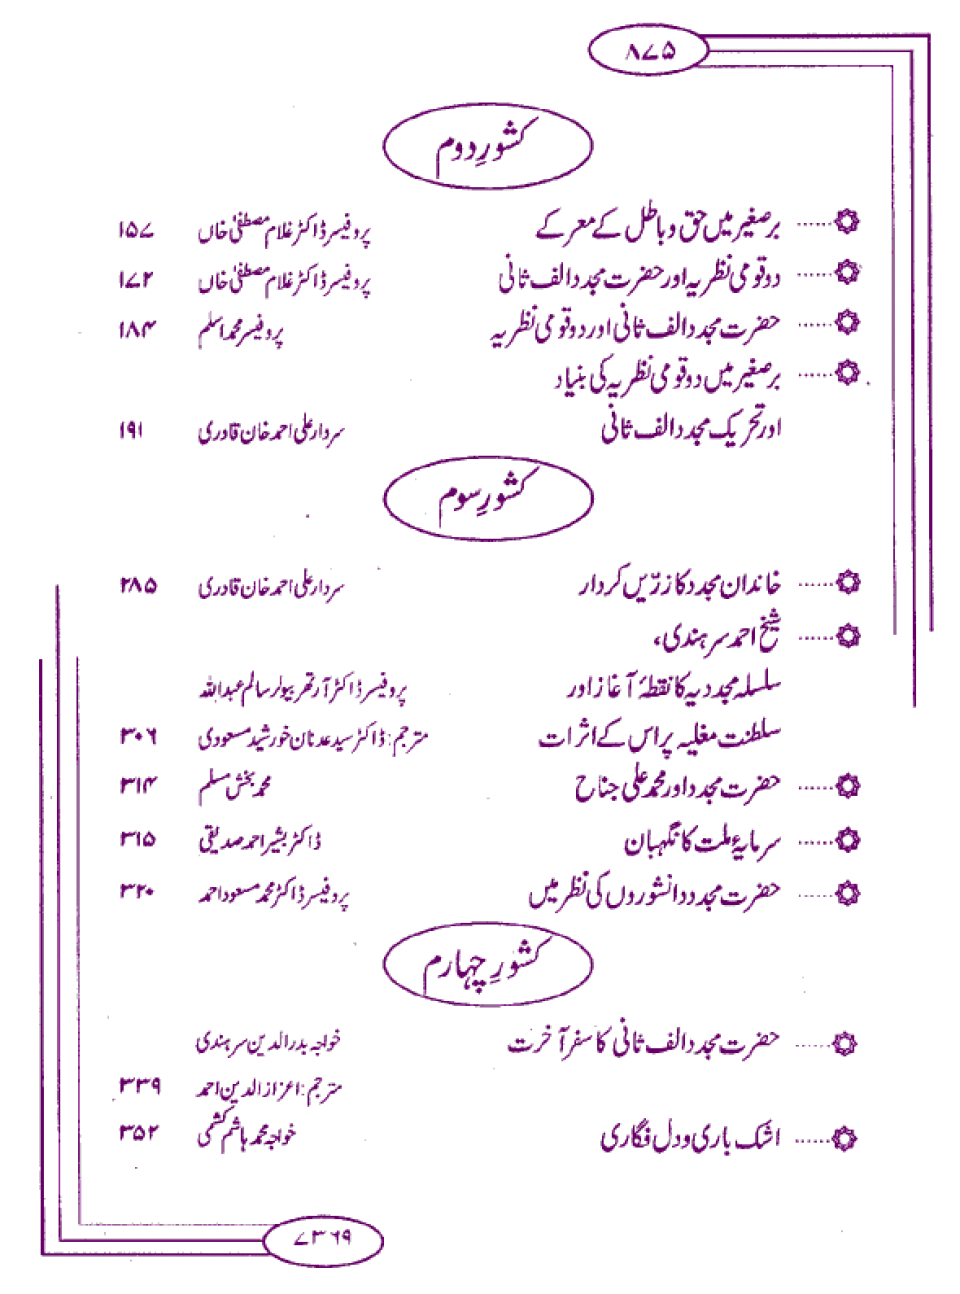 ۸۷۵
کشورِ دوم
برصغیر میں حق و باطل کے معرکے پروفیسر ڈاکٹر غلام مصطفیٰ خاں ۱۵۷
دو قومی نظریہ اور حضرت مجدد الف ثانی پروفیسر ڈاکٹر غلام مصطفیٰ خاں ۱۷۲
حضرت مجدد الف ثانی اور دو قومی نظریہ پروفیسر محمد اسلم ۱۸۴
برصغیر میں دو قومی نظریہ کی بنیاد
اور تحریک مجدد الف ثانی سردار علی احمد خان قادری ۱۹۱
کشورِ سوم
خاندان مجدد کا زرّیں کردار سردار علی احمد خان قادری ۲۸۵
شیخ احمد سرہندی،
سلسلہ مجددیہ کا نقطۂ آغاز اور پروفیسر ڈاکٹر آرتھر بیولر سالم عبداللہ
سلطنت مغلیہ پر اس کے اثرات مترجم: ڈاکٹر سید عدنان خورشید مسعودی ۳۰۶
حضرت مجدد اور محمد علی جناح محمد بخش مسلم ۳۱۴
سرمایۂ ملت کا نگہبان ڈاکٹر بشیر احمد صدیقی ۳۱۵
حضرت مجدد دانشوروں کی نظر میں پروفیسر ڈاکٹر محمد مسعود احمد ۳۲۰
کشورِ چہارم
حضرت مجدد الف ثانی کا سفر آخرت خواجہ بدرالدین سرہندی
مترجم: اعزاز الدین احمد ۳۳۹
اشک باری و دل فگاری خواجہ محمد ہاشم کشمی ۳۵۲
۷۳۶۹